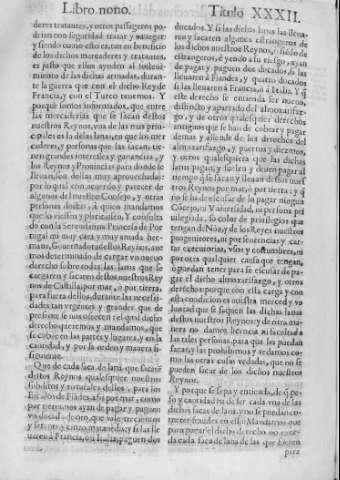 Libro nono.
Titulo XXXII.
deres tratantes, y otros passageros po-
derio con seguridad tratar y nauegar:
y siendo como esto es, tan en beneficio
de los dichos mercaderes y tratantes,
es justo que ellos ayuden al sosteni-
miento de las dichas armadas, duran-
te la guerra que con el dicho Rey de
Francia, y con el Turco tenemos. Y
porque somos informados, que entre
las mercaderias que se sacan destos
nuestros Reynos, vna de las mas prin-
cipales es la de las lanas, en que los mer
caderes, y personas que las sacan, tie-
nen grandes interesses y ganancias, y
los Reynos y Prouincias para donde se
lleuan, son dellas muy aprouechados:
por lo qual con acuerdo y parecer de
algunos del nuestro Consejo, y otras
personas doctas, a quien mandamos
que lo viessen y platicassen. Y consulta
do con la Serenissima Princesa de Por
tugal mi muy cara y muy amada her-
mana, Gouernadora dessos Reynos, auemos
determinado de cargar vn nueuo
derecho sobre todas las lanas que se
cargaren y sacaren de los nuestros Rey
nos de Castilla, por mar, ò por tierra,
para fuera dellos, durante las necessi-
dades tan vrgentes y grandes que de
presente se nos ofrecen: el qual dicho
derecho queremos y mandamos, que
se cobre en las partes y lugares, y en la
cantidad, y por la orden y manera si-
guiente.
Que de cada saca de lana, que sacaren
destos Reynos qualesquier nuestros
subditos y naturales dellos, para los
Estados de Flandes, assi por mar, como
por tierra
ducados. Y si las dichas lanas las lleua-
ren y sacaren algunos estrangeros de
los dichos nuestros Reynos, ò siendo de
estrangeros, è yendo a su riesgo, ayan
de pagar y paguen dos ducados, si las
lleuaren à Flandes, y quatro ducados
si las lleuaren à Francia, ò à Italia. Y q̃
este derecho se entienda ser nueuo,
distincto y apartado del almoxarifaz-
go, y de otros qualesquier derechos
antiguos que se han de cobrar y pagar
demas y allende de los derechos del
almoxarifazgo, y puertos y diezmos,
y otros qualesquiera que las dichas
lanas pagan, y suelen y deuen pagar al
tiempo q̃ se sacan y lleuan de los nues-
tros Reynos por mar, ò por tierra: y q̃
no se pueda escusar de la pagar ningun
Cuerpo, ni Vniuersidad, ni persona pri
uilegiada, so color de priuilegios que
tengan de Nos, y de los Reyes nuestros
progenitores, ni por sentencias, y car-
tas executorias, vsos y costumbres, ni
por otra qualquier causa que tengan,
ò puedan tener para se escusar de pa-
gar el dicho almoxarifazgo, y otros
derechos: porque con esta carga y con
esta condicion es nuestra merced y vo
luntad que se saquen las dichas lanas
destos nuestros Reynos: y de otra ma-
nera no damos licencia ni facultad a
las tales personas, para que las puedan
sacar: y las prohibimos y vedamos co-
mo las otras cosas vedadas, que no se
pueden sacar de los dichos nuestros
Reynos.
Y porque se sepa y entienda, de q̃ pe-
so y cantidad ha de ser cada vna de las
dichas sacas de lana, y no se puedan co-
meter fraudes en ello: Mandamos que
para pagar el dicho derecho, no exceda
cada saca de lana de las que
para